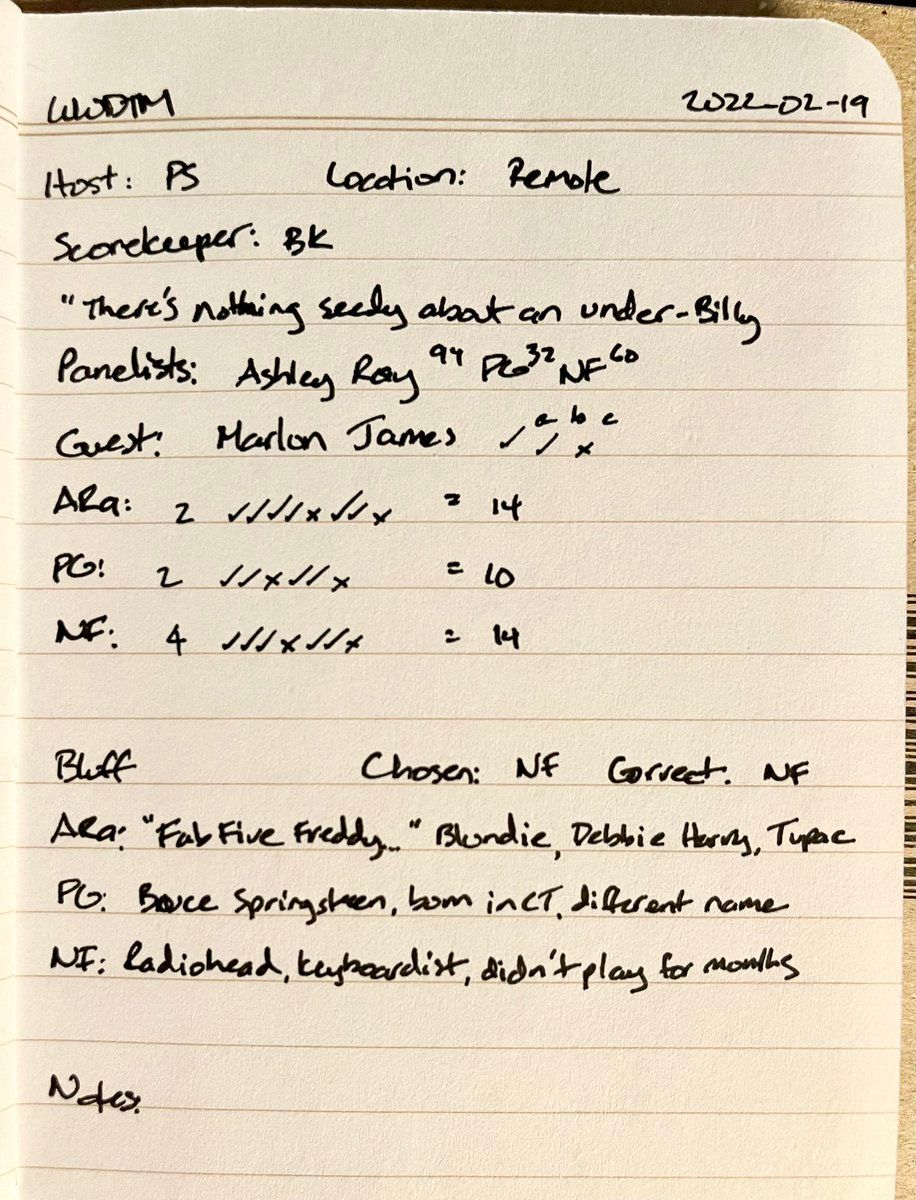 WWDTM 2022-02-19
Host: PS Location: Remote
Scorekeeper: BK
"There's nothing seedy about an under-Billy
Panelists: Ashley Ray 94 PG 32 NF 60
Guest: Marlon James ✓ a ✓ b x c
ARa: 2 ✓✓✓✓x✓✓x = 14
PG: 2 ✓✓x✓✓x = 10
NF: 4 ✓✓✓x✓✓x = 14
Bluff Chosen: NF Correct: NF
ARa: "Fab Five Freddy..." Blondie, Debbie Harry, Tupac
PG: Bruce Springsteen, born in CT, different name
NF: Radiohead, keyboardist, didn't play for months
Notes: